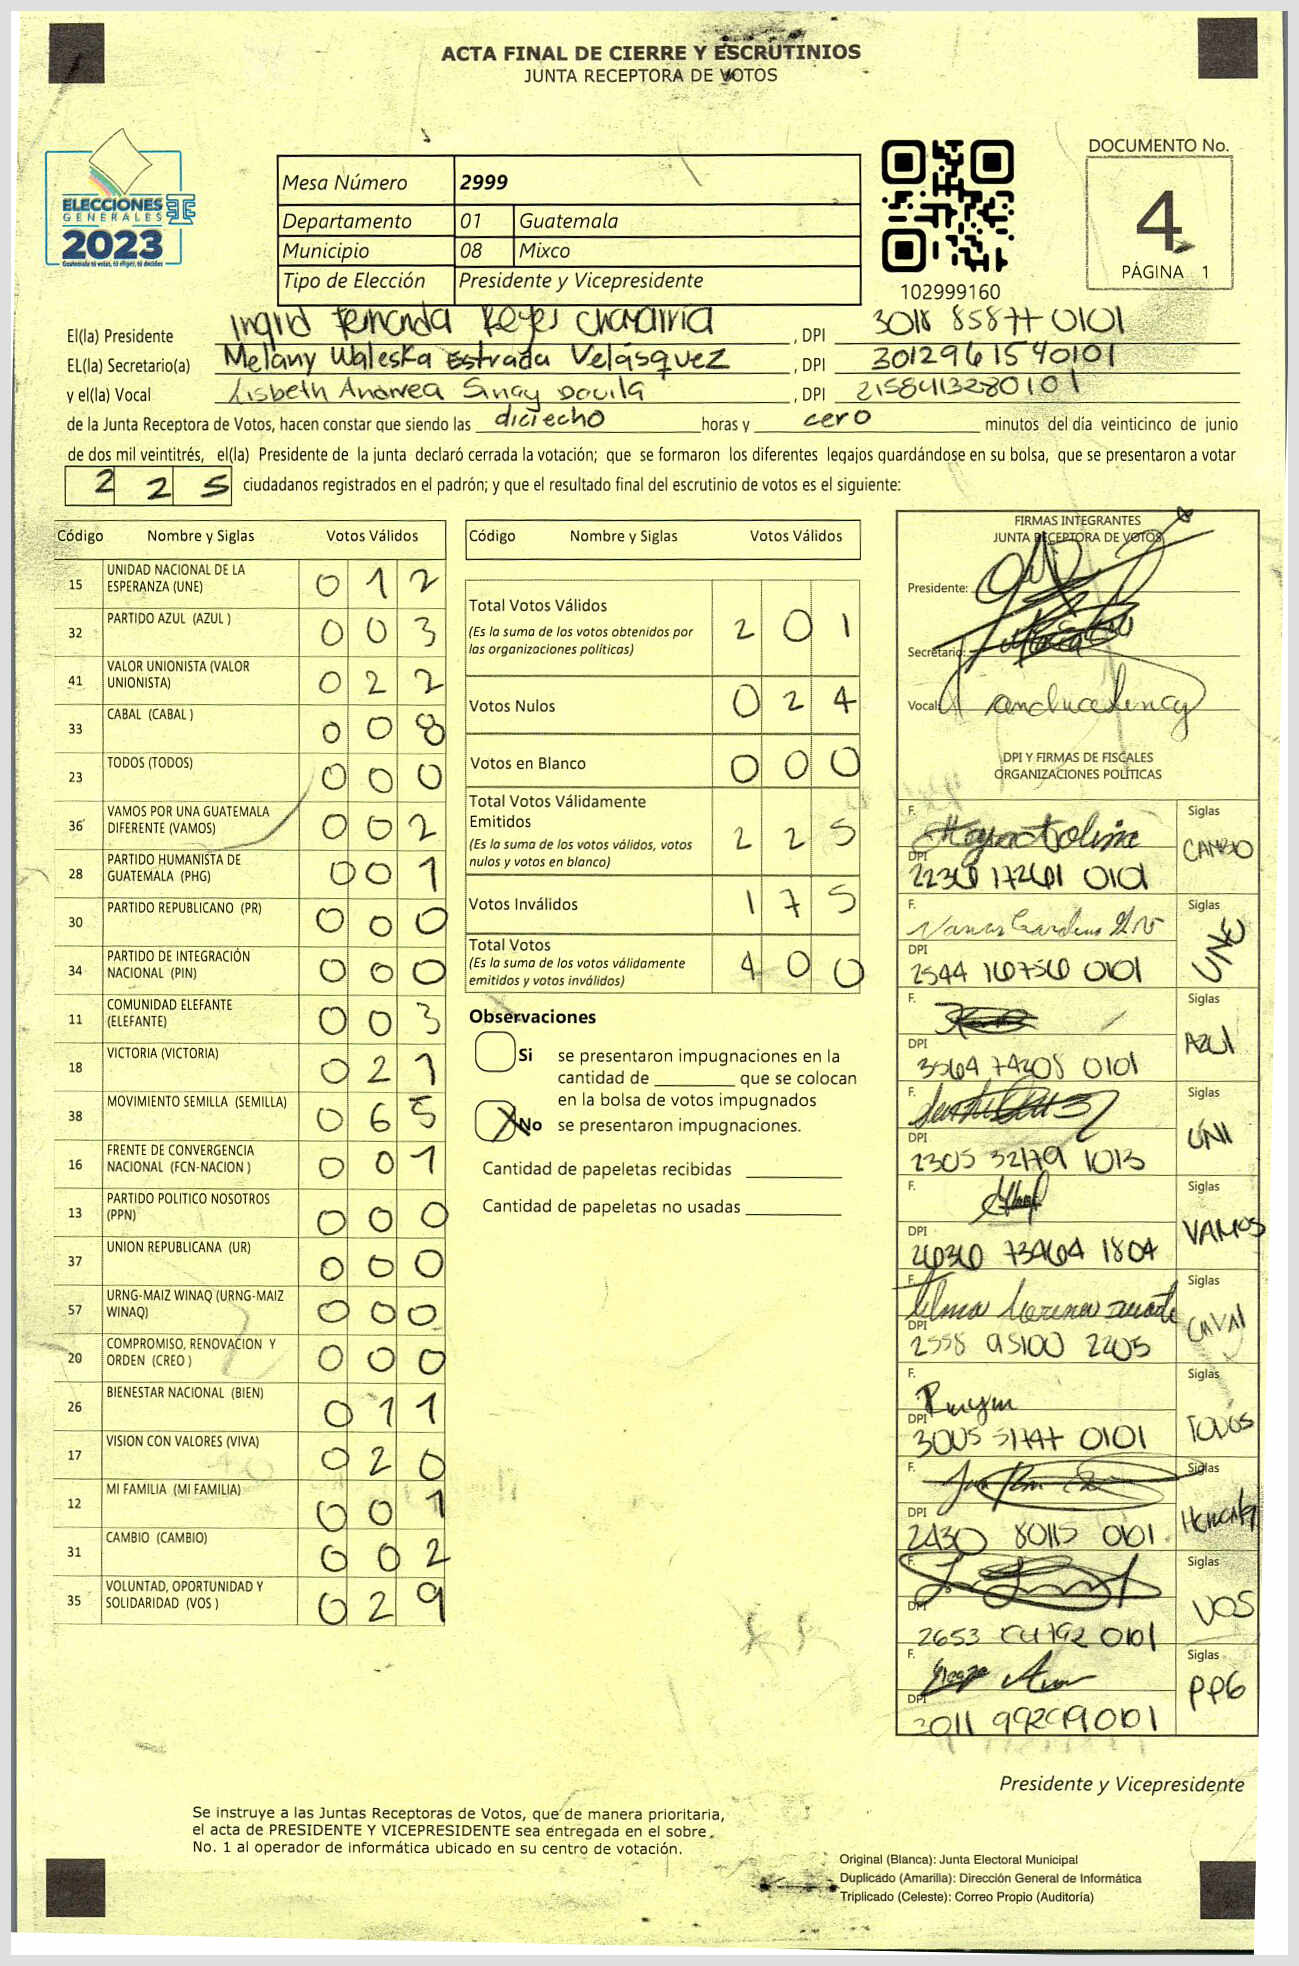 ACTA FINAL DE CIERRE Y ESCRUTINIOS
JUNTA RECEPTORA DE VOTOS
ELECCIONES
GENERALES
2023
Guatemala tú votas, tú eliges, tú decides
Mesa Número 2999
Departamento 01 Guatemala
Municipio 08 Mixco
Tipo de Elección Presidente y Vicepresidente
102999160
DOCUMENTO No.
4
PÁGINA 1
El(la) Presidente Ingrid Fernanda Reyes Chavarría , DPI 3018 85877 0101
EL(la) Secretario(a) Melany Waleska Estrada Velásquez , DPI 3012961540101
y el(la) Vocal Lisbeth Andrea Sinay Davila , DPI 2158413280101
de la Junta Receptora de Votos, hacen constar que siendo las dieciecho horas y cero minutos del día veinticinco de junio
de dos mil veintitrés, el(la) Presidente de la junta declaró cerrada la votación; que se formaron los diferentes legajos guardándose en su bolsa, que se presentaron a votar
225 ciudadanos registrados en el padrón; y que el resultado final del escrutinio de votos es el siguiente:
Código Nombre y Siglas Votos Válidos
15 UNIDAD NACIONAL DE LA ESPERANZA (UNE) 012
32 PARTIDO AZUL (AZUL ) 003
41 VALOR UNIONISTA (VALOR UNIONISTA) 022
33 CABAL (CABAL ) 008
23 TODOS (TODOS) 000
36 VAMOS POR UNA GUATEMALA DIFERENTE (VAMOS) 002
28 PARTIDO HUMANISTA DE GUATEMALA (PHG) 001
30 PARTIDO REPUBLICANO (PR) 000
34 PARTIDO DE INTEGRACIÓN NACIONAL (PIN) 000
11 COMUNIDAD ELEFANTE (ELEFANTE) 003
18 VICTORIA (VICTORIA) 021
38 MOVIMIENTO SEMILLA (SEMILLA) 065
16 FRENTE DE CONVERGENCIA NACIONAL (FCN-NACION ) 001
13 PARTIDO POLITICO NOSOTROS (PPN) 000
37 UNION REPUBLICANA (UR) 000
57 URNG-MAIZ WINAQ (URNG-MAIZ WINAQ) 000
20 COMPROMISO, RENOVACION Y ORDEN (CREO ) 000
26 BIENESTAR NACIONAL (BIEN) 011
17 VISION CON VALORES (VIVA) 020
12 MI FAMILIA (MI FAMILIA) 001
31 CAMBIO (CAMBIO) 002
35 VOLUNTAD, OPORTUNIDAD Y SOLIDARIDAD (VOS ) 029
Código Nombre y Siglas Votos Válidos
Total Votos Válidos 201
(Es la suma de los votos obtenidos por
las organizaciones políticas)
Votos Nulos 024
Votos en Blanco 000
Total Votos Válidamente
Emitidos 225
(Es la suma de los votos válidos, votos
nulos y votos en blanco)
Votos Inválidos 175
Total Votos 400
(Es la suma de los votos válidamente
emitidos y votos inválidos)
Observaciones
Si se presentaron impugnaciones en la
cantidad de ________ que se colocan
en la bolsa de votos impugnados
X No se presentaron impugnaciones.
Cantidad de papeletas recibidas
Cantidad de papeletas no usadas
FIRMAS INTEGRANTES
JUNTA RECEPTORA DE VOTOS
Presidente:
Secretario:
Vocal:
DPI Y FIRMAS DE FISCALES
ORGANIZACIONES POLÍTICAS
F. Siglas CAMBIO
DPI 2236 17261 0101
F. Siglas UNE
DPI 2544 16756 0101
F. Siglas AZUL
DPI 3564 74208 0101
F. Siglas UNI
DPI 2305 32179 1013
F. Siglas VAMOS
DPI 2636 73464 1804
F. Telma Lorena Duarte Siglas CAVAl
DPI 2558 95100 2205
F. Siglas TODOS
DPI 3005 51747 0101
F. Siglas
DPI 2430 80115 0101
F. Siglas VOS
DPI 2653 0101
F. Siglas PPG
DPI 3011
Presidente y Vicepresidente
Se instruye a las Juntas Receptoras de Votos, que de manera prioritaria,
el acta de PRESIDENTE Y VICEPRESIDENTE sea entregada en el sobre
No. 1 al operador de informática ubicado en su centro de votación.
Original (Blanca): Junta Electoral Municipal
Duplicado (Amarilla): Dirección General de Informática
Triplicado (Celeste): Correo Propio (Auditoría)